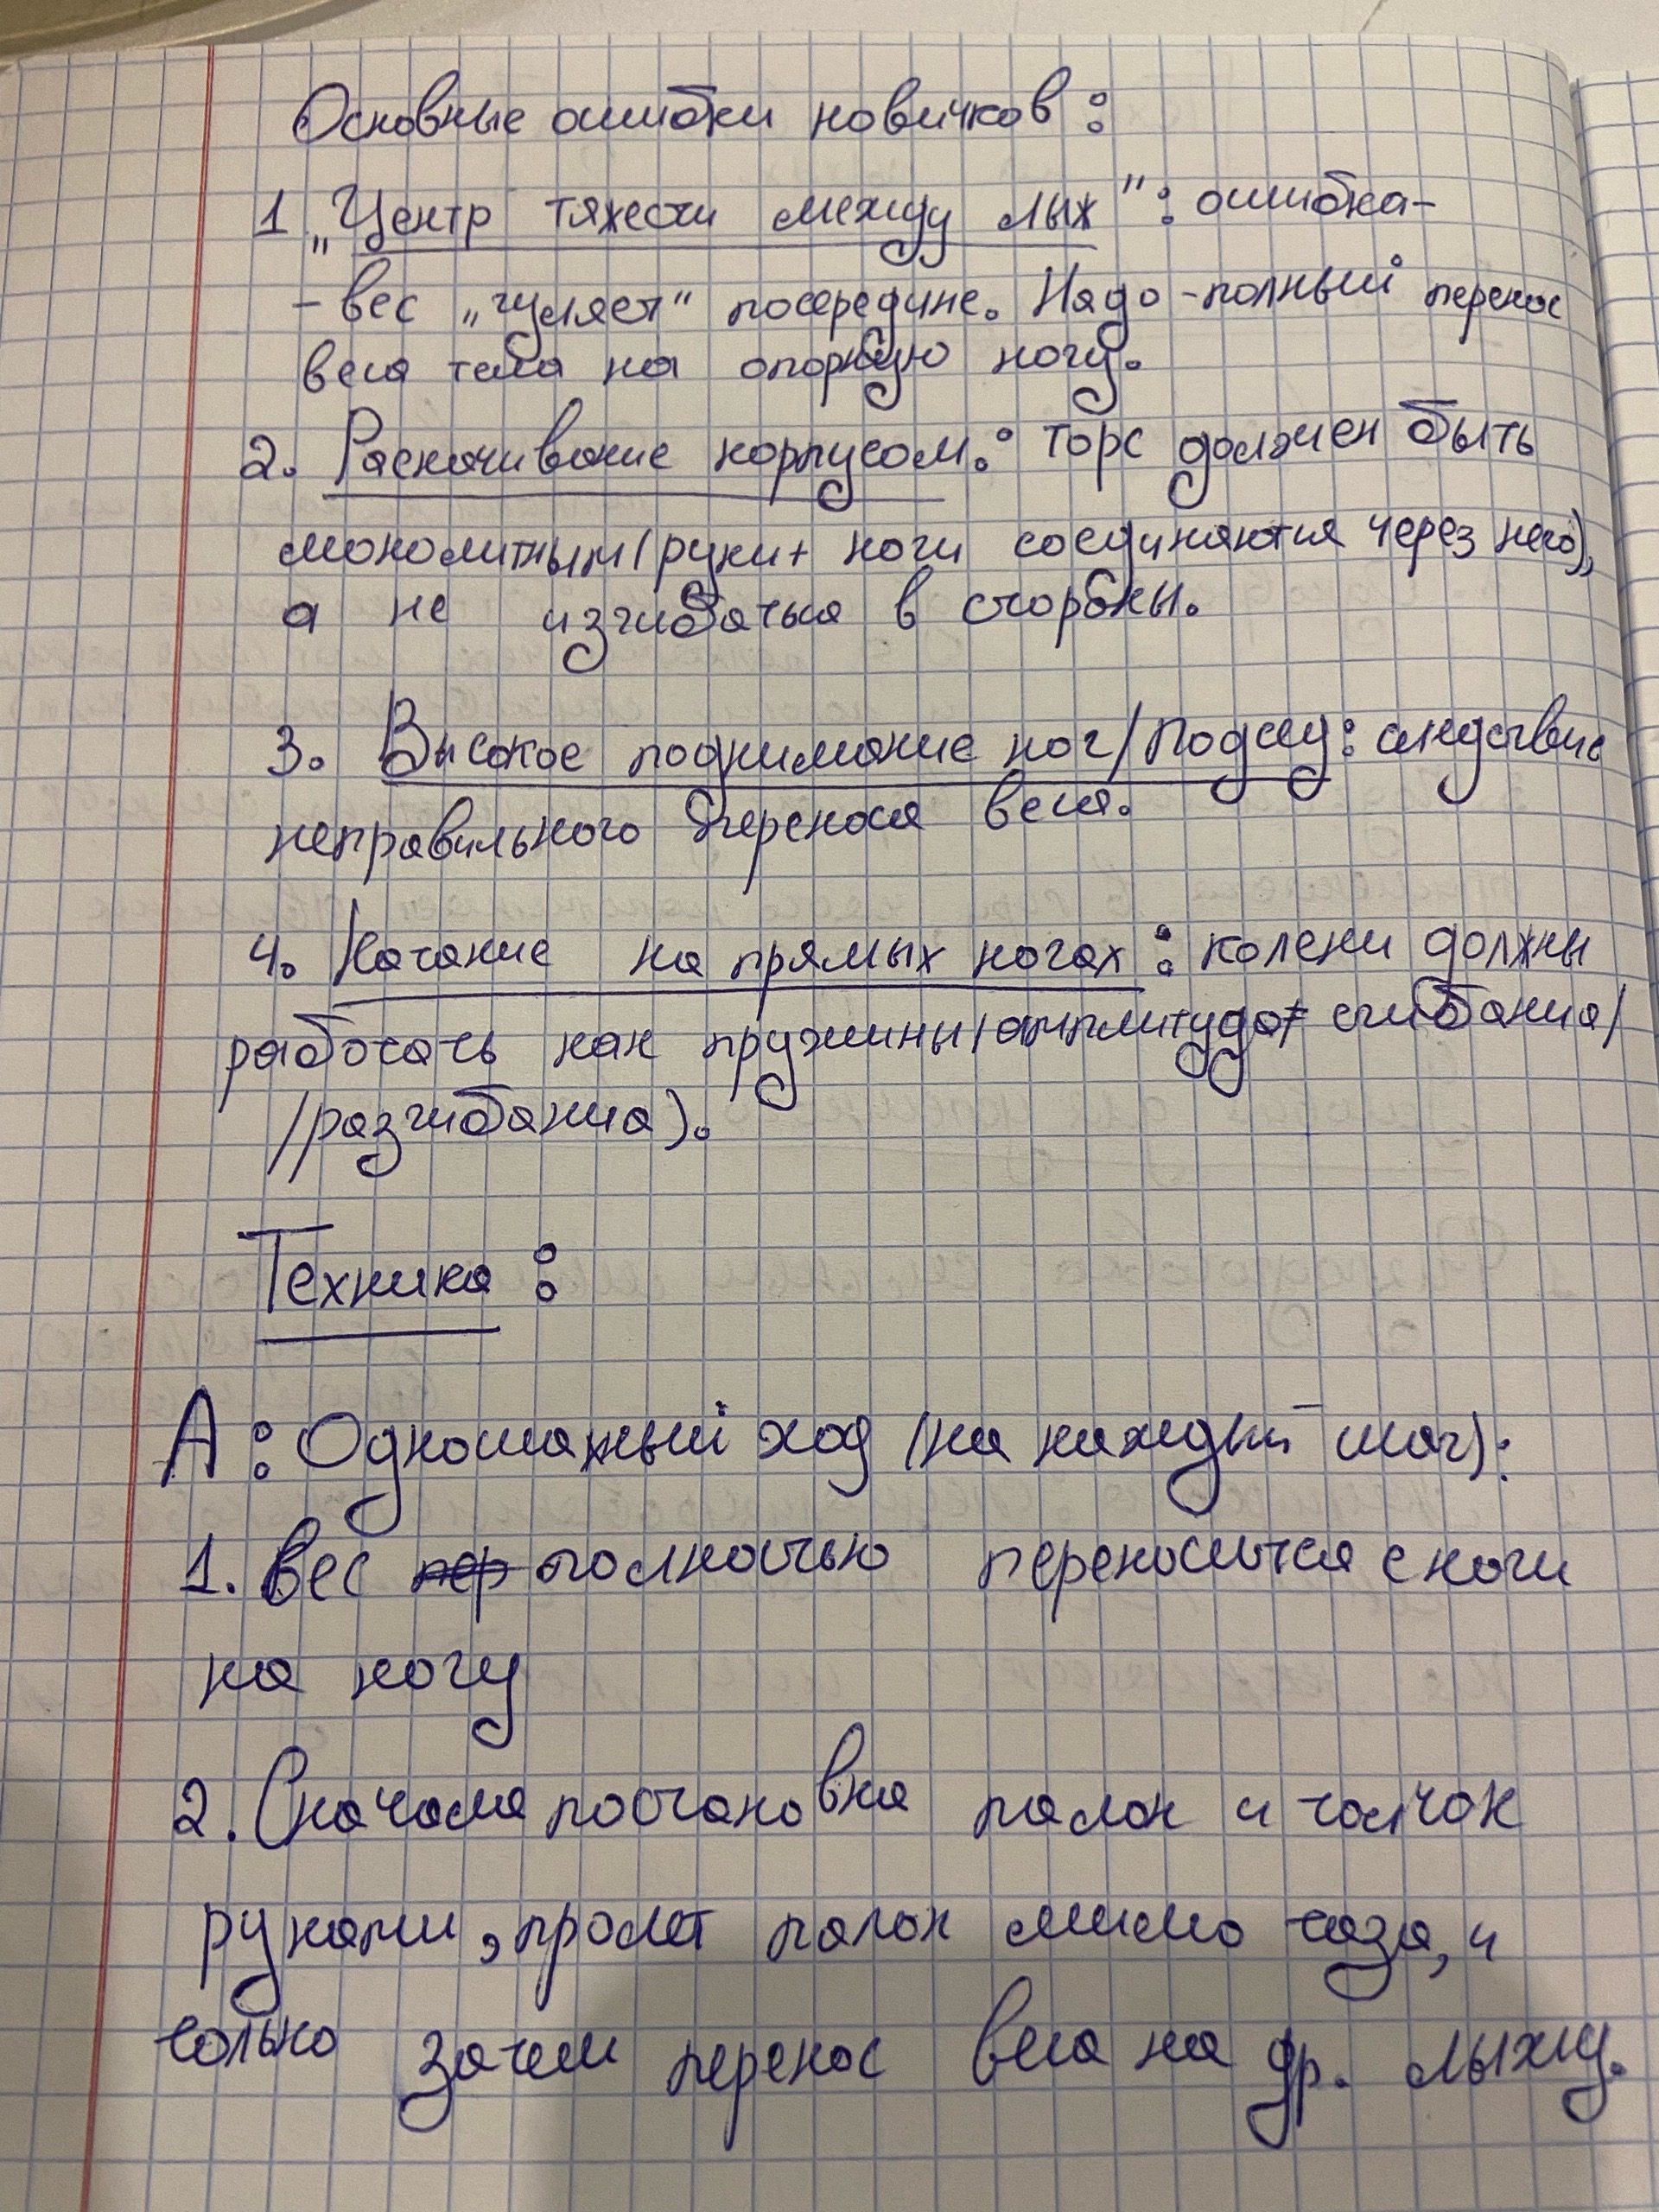 Основные ошибки новичков:
1 „Центр тяжести между лыж": ошибка-
- вес „гуляет" посередине. Надо - полный перенос
веса тела на опорную ногу.
2. Раскачивание корпусом.: торс должен быть
монолитным (руки + ноги соединяются через него),
а не изгибаться в стороны.
3. Высокое поднимание ног/Подсед: следствие
неправильного переноса веса.
4. Качание на прямых ногах: колени должны
работать как пружины (амплитуда сгибания/
/разгибания).
Техника:
А: Одношажный ход (на каждый шаг):
1. Вес пер полностью переносится с ноги
на ногу
2. Сначала постановка палок и толчок
руками, пролет палок мимо таза, и
только затем перенос веса на др. лыжу.